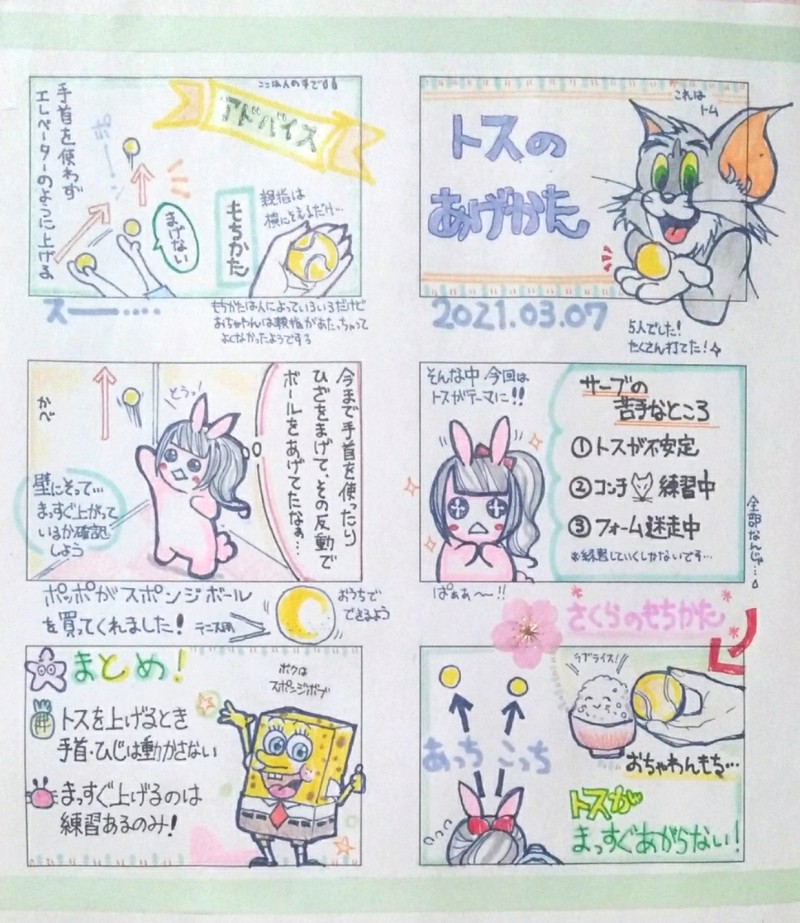 これは
トム
トスの
あげかた
2021.03.07
5人でした!
たくさん打てた!
そんな中 今回は
トスがテーマに!!
サーブの
苦手なところ
①トスが不安定
②コンチ 練習中
③フォーム迷走中
※練習していくしかないです…
全部なんじゃ…
ぱぁぁ〜!!
さくらのもちかた
ラブライス!
おちゃわんもち…
あっち こっち
トスが
まっすぐあがらない!
アドバイス
手首を使わず
エレベーターのように上げる
ポーン
まげない
もちかた
親指は
横にそえるだけ…
スー……
もちかたは人によっていろいろだけど
おちゃわんは親指があたっちゃって
よくなかったようです
今まで手首を使ったり
ひざをまげて、その反動で
ボールをあげてたなぁ…
とうっ!
かべ
壁にそって…
まっすぐ上がって
いるか確認
しよう
ポッポがスポンジボール
を買ってくれました!
テニス用
おうちで
できるよう
まとめ!
ボクは
スポンジボブ
トスを上げるとき
手首・ひじは動かさない
まっすぐ上げるのは
練習あるのみ!